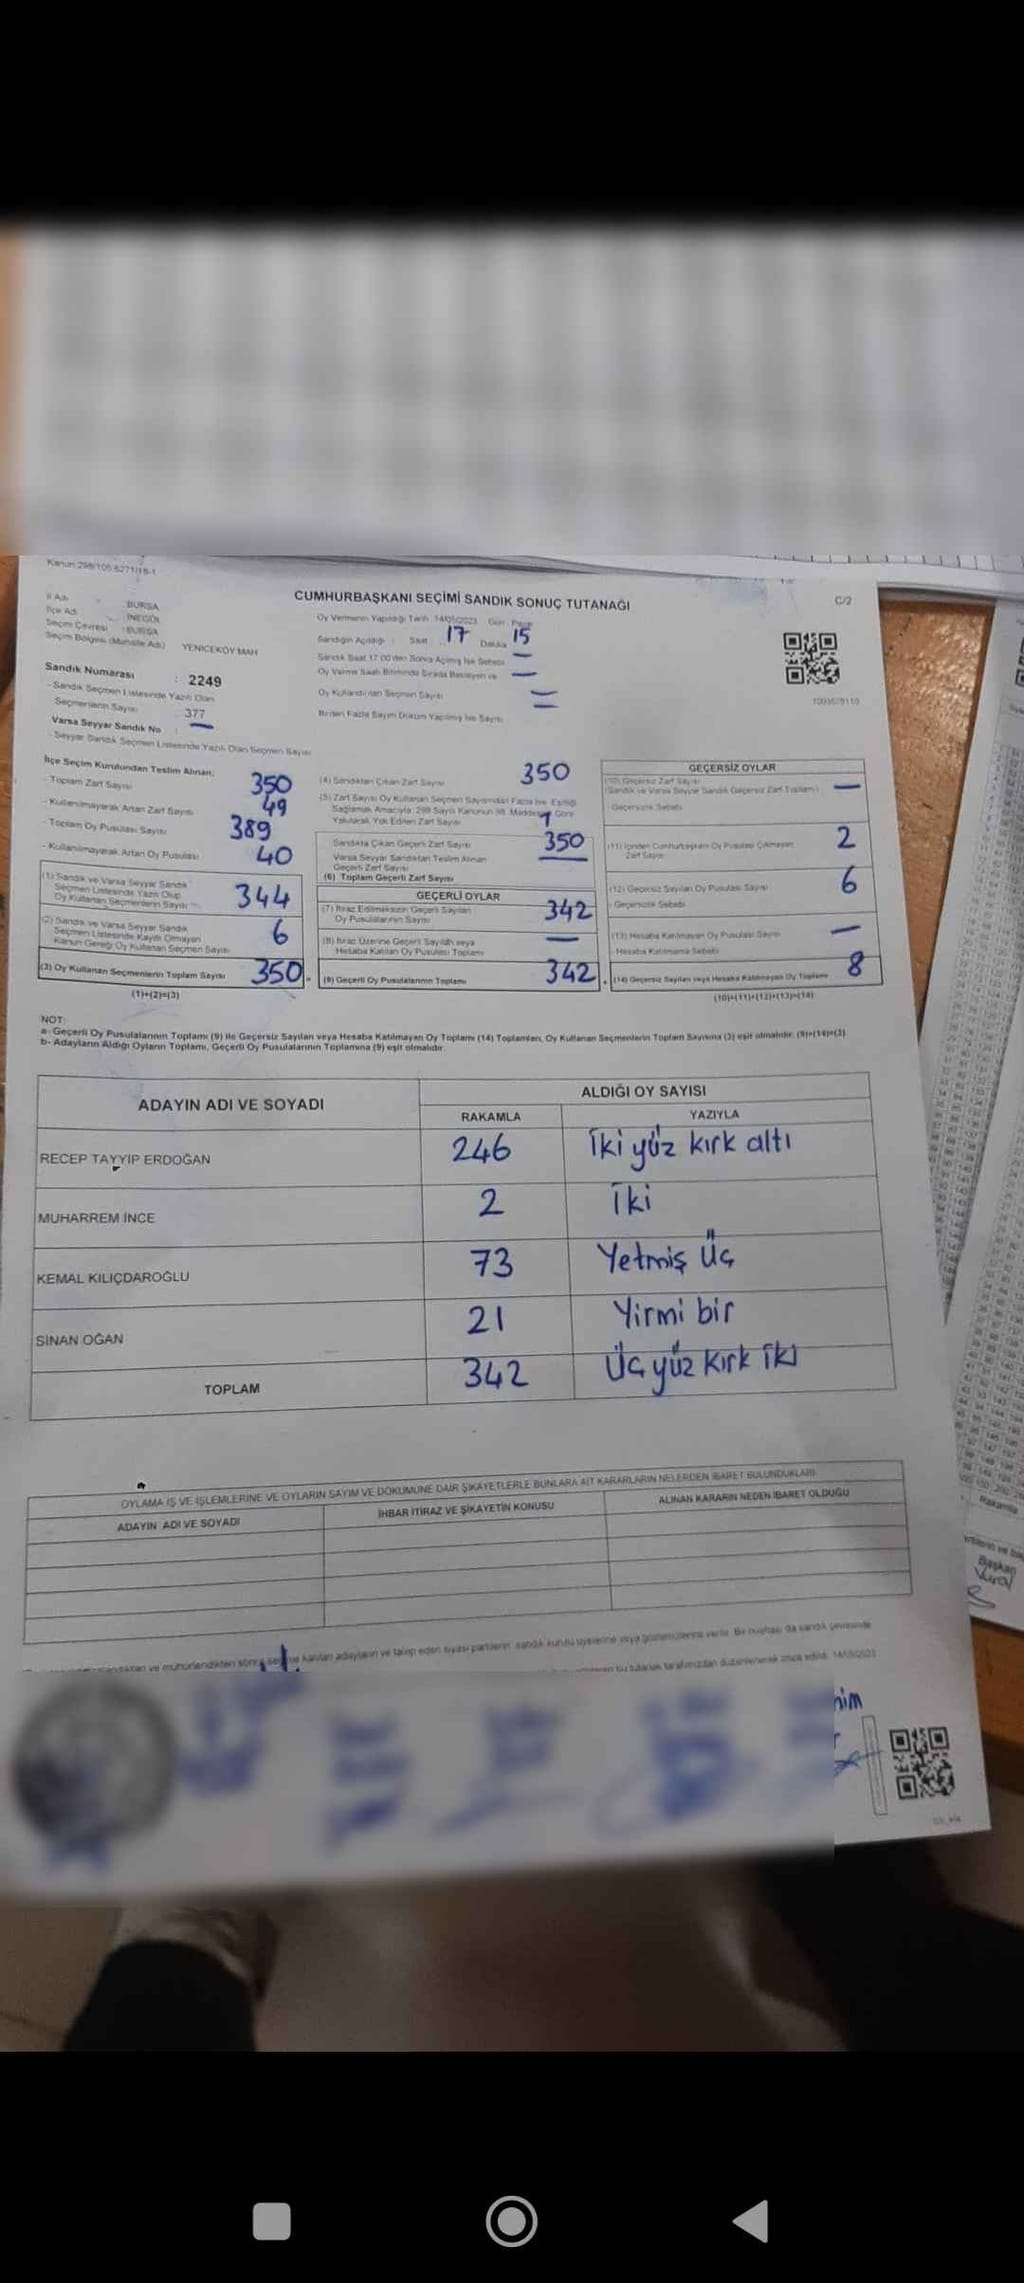 Kanun:298/105 5271/18-1
C/2
CUMHURBAŞKANI SEÇİMİ SANDIK SONUÇ TUTANAĞI
İl Adı : BURSA
İlçe Adı : İNEGÖL
Seçim Çevresi : BURSA
Seçim Bölgesi (Mahalle Adı) YENİCEKÖY MAH
Oy Vermenin Yapıldığı Tarih :14/05/2023 Gün : Pazar
Sandığın Açıldığı : Saat : 17 Dakika 15
Sandık Saat 17.00'den Sonra Açılmış İse Sebebi —
Oy Verme Saati Bitiminde Sırada Bekleyen ve —
Oy Kullandırılan Seçmen Sayısı
Birden Fazla Sayım Döküm Yapılmış İse Sayısı
Sandık Numarası : 2249
- Sandık Seçmen Listesinde Yazılı Olan
Seçmenlerin Sayısı : 377
Varsa Seyyar Sandık No : —
- Seyyar Sandık Seçmen Listesinde Yazılı Olan Seçmen Sayısı
İlçe Seçim Kurulundan Teslim Alınan;
- Toplam Zarf Sayısı 350
- Kullanılmayarak Artan Zarf Sayısı 49
- Toplam Oy Pusulası Sayısı 389
- Kullanılmayarak Artan Oy Pusulası 40
(1) Sandık ve Varsa Seyyar Sandık
Seçmen Listesinde Yazılı Olup
Oy Kullanan Seçmenlerin Sayısı 344
(2) Sandık ve Varsa Seyyar Sandık
Seçmen Listesinde Kayıtlı Olmayan
Kanun Gereği Oy Kullanan Seçmen Sayısı 6
(3) Oy Kullanan Seçmenlerin Toplam Sayısı 350
(1)+(2)=(3)
(4) Sandıktan Çıkan Zarf Sayısı 350
(5) Zarf Sayısı Oy Kullanan Seçmen Sayısından Fazla İse, Eşitliği
Sağlamak Amacıyla, 298 Sayılı Kanunun 98. Maddesine Göre
Yakılarak Yok Edilen Zarf Sayısı
Sandıkta Çıkan Geçerli Zarf Sayısı 350
Varsa Seyyar Sandıktan Teslim Alınan
Geçerli Zarf Sayısı
(6) Toplam Geçerli Zarf Sayısı
GEÇERLİ OYLAR
(7) İtiraz Edilmeksizin Geçerli Sayılan
Oy Pusulalarının Sayısı 342
(8) İtiraz Üzerine Geçerli Sayıldı veya
Hesaba Katılan Oy Pusulası Toplamı —
(9) Geçerli Oy Pusulalarının Toplamı 342
GEÇERSİZ OYLAR
(10) Geçersiz Zarf Sayısı
(Sandık ve Varsa Seyyar Sandık Geçersiz Zarf Toplamı) —
- Geçersizlik Sebebi
(11) İçinden Cumhurbaşkanı Oy Pusulası Çıkmayan
Zarf Sayısı 2
(12) Geçersiz Sayılan Oy Pusulası Sayısı 6
- Geçersizlik Sebebi
(13) Hesaba Katılmayan Oy Pusulası Sayısı —
- Hesaba Katılmama Sebebi
(14) Geçersiz Sayılan veya Hesaba Katılmayan Oy Toplamı 8
(10)+(11)+(12)+(13)=(14)
NOT:
a- Geçerli Oy Pusulalarının Toplamı (9) ile Geçersiz Sayılan veya Hesaba Katılmayan Oy Toplamı (14) Toplamları, Oy Kullanan Seçmenlerin Toplam Sayısına (3) eşit olmalıdır. (9)+(14)=(3)
b- Adayların Aldığı Oyların Toplamı, Geçerli Oy Pusulalarının Toplamına (9) eşit olmalıdır.
ADAYIN ADI VE SOYADI
ALDIĞI OY SAYISI
RAKAMLA YAZIYLA
RECEP TAYYİP ERDOĞAN 246 İki yüz kırk altı
MUHARREM İNCE 2 İki
KEMAL KILIÇDAROĞLU 73 Yetmiş Üç
SİNAN OĞAN 21 Yirmi bir
TOPLAM 342 Üç yüz kırk iki
OYLAMA İŞ VE İŞLEMLERİNE VE OYLARIN SAYIM VE DÖKÜMÜNE DAİR ŞİKAYETLERLE BUNLARA AİT KARARLARIN NELERDEN İBARET BULUNDUKLARI
ADAYIN ADI VE SOYADI
İHBAR İTİRAZ VE ŞİKAYETİN KONUSU
ALINAN KARARIN NEDEN İBARET OLDUĞU
Başkan